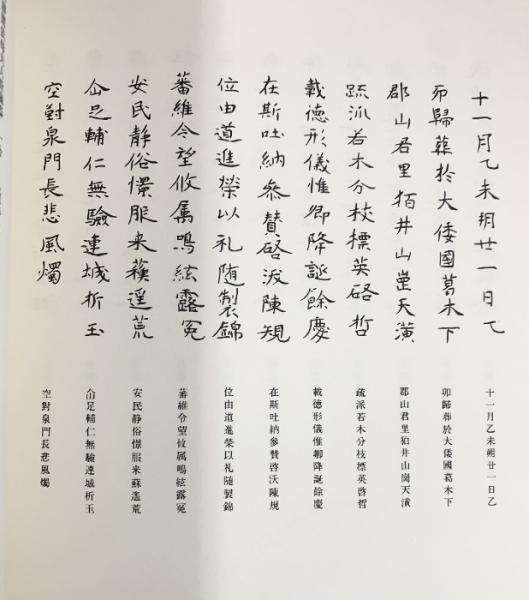 十一月乙未朔廿一日乙
卯歸葬於大倭國葛木下
郡山君里狛井山崗天潢
疏派若木分枝標英啓哲
載德形儀惟卿降誕餘慶
在斯吐納參賛啓沃陳規
位由道進榮以礼随製錦
蕃維令望攸属鳴絃露冕
安民静俗憬服来蘓遥荒
仚足輔仁無驗連城析玉
空對泉門長悲風燭
十一月乙未朔廿一日乙
卯歸葬於大倭國葛木下
郡山君里狛井山崗天潢
疏派若木分枝標英啓哲
載德形儀惟卿降誕餘慶
在斯吐納參賛啓沃陳規
位由道進榮以礼随製錦
蕃維令望攸属鳴絃露冕
安民静俗憬服来蘇遥荒
仚足輔仁無驗連城析玉
空對泉門長悲風燭